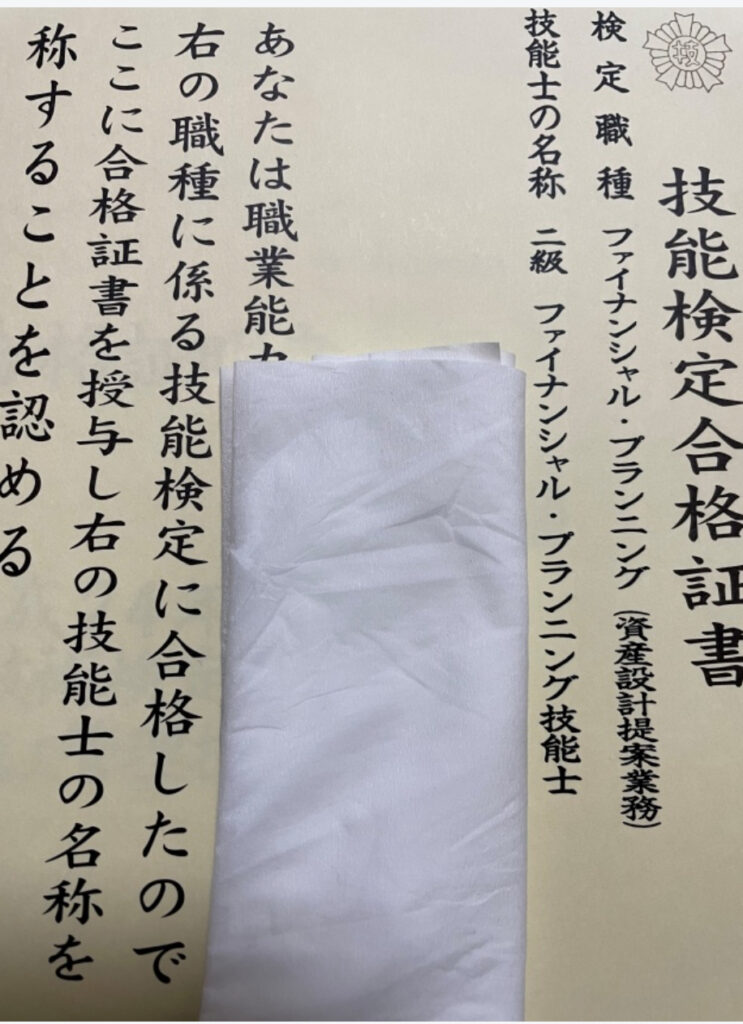 技能検定合格証書
検定職種 ファイナンシャル・プランニング (資産設計提案業務)
技能士の名称 二級 ファイナンシャル・プランニング技能士
あなたは職業能
右の職種に係る技能検定に合格したので
ここに合格証書を授与し右の技能士の名称を
称することを認める
技